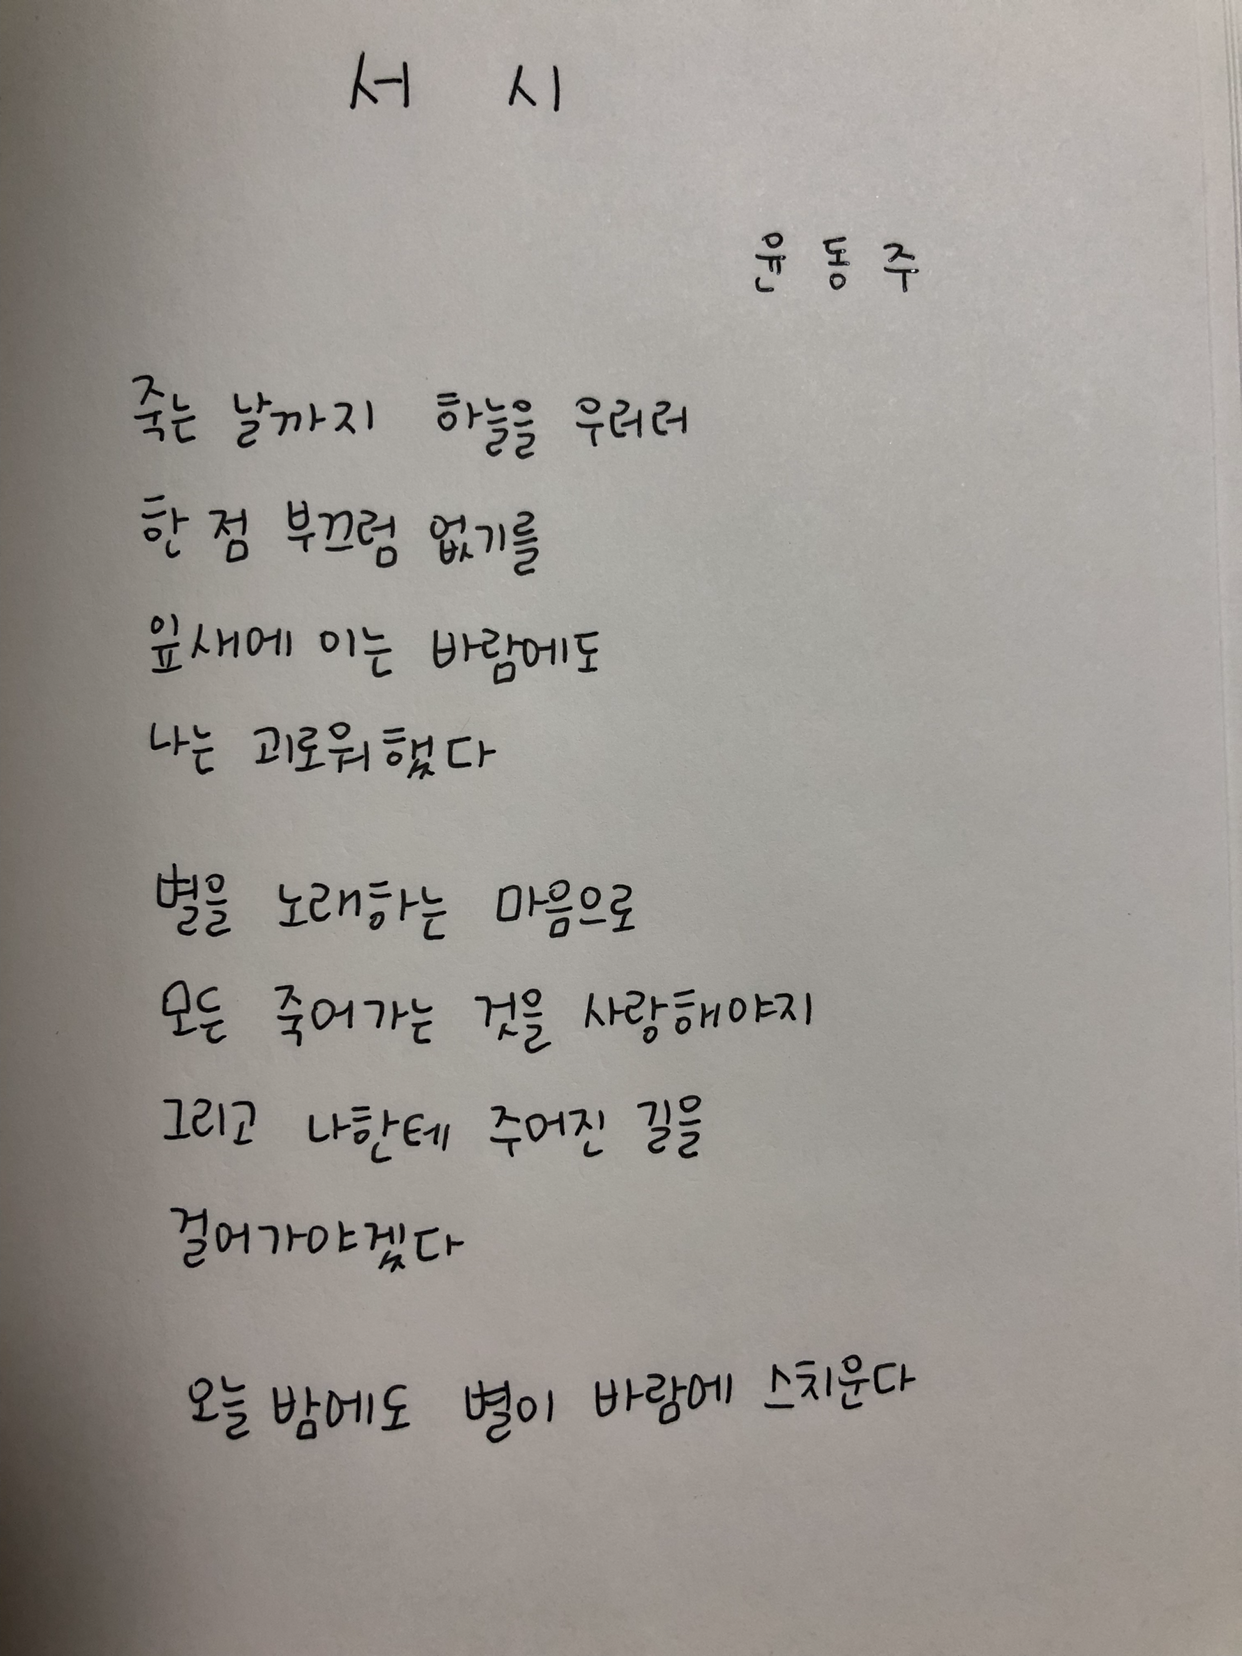 서 시
윤 동 주
죽는 날까지 하늘을 우러러
한 점 부끄럼 없기를
잎새에 이는 바람에도
나는 괴로워했다
별을 노래하는 마음으로
모든 죽어가는 것을 사랑해야지
그리고 나한테 주어진 길을
걸어가야겠다
오늘 밤에도 별이 바람에 스치운다